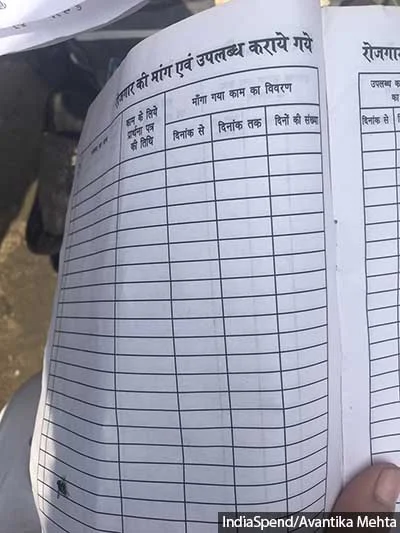 रोजगार की मांग एवं उपलब्ध कराये गये
काम के लिये
प्रार्थना पत्र
की तिथि
माँगा गया काम का विवरण
दिनांक से
दिनांक तक
दिनों की संख्या
रोजगा
उपलब्ध क
का
दिनांक से
IndiaSpend/Avantika Mehta